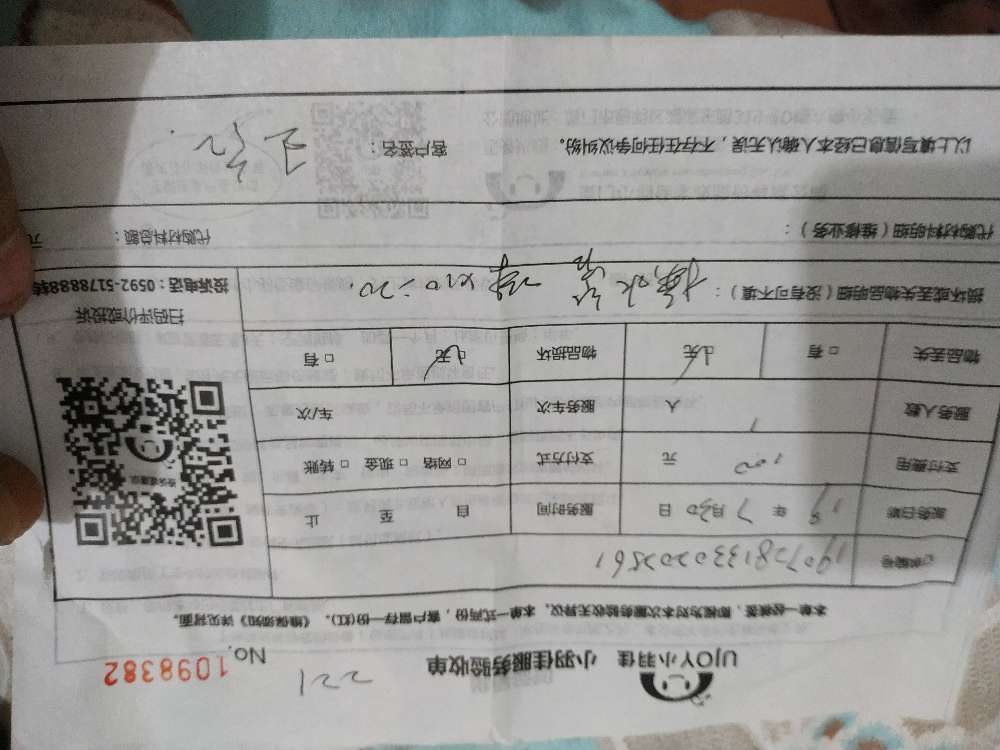 UJOY小羽佳 小羽佳服务验收单 221 No. 1098382
本单一经接签，即视为对本次服务验收无异议。本单一式两份，客户留存一份(红)。《维保须知》详见背面。
订单编号 190728133202561
服务日期 19 年 7 月 30 日 服务时间 自 至 止
支付费用 100 元 支付方式 □ 网络 □ 现金 □ 转账
服务人数 1 人 服务车次 车/次
物品丢失 □ 有 □ 无 物品损坏 □ 有 □ 无
扫码评价或投诉
投诉电话：0592-5178888转
损坏或丢失物品明细（没有可不填）：
代购材料明细（维修业务）： 代购材料总额： 元
以上填写信息已经本人确认无误，不存在任何争议纠纷。 客户签名：